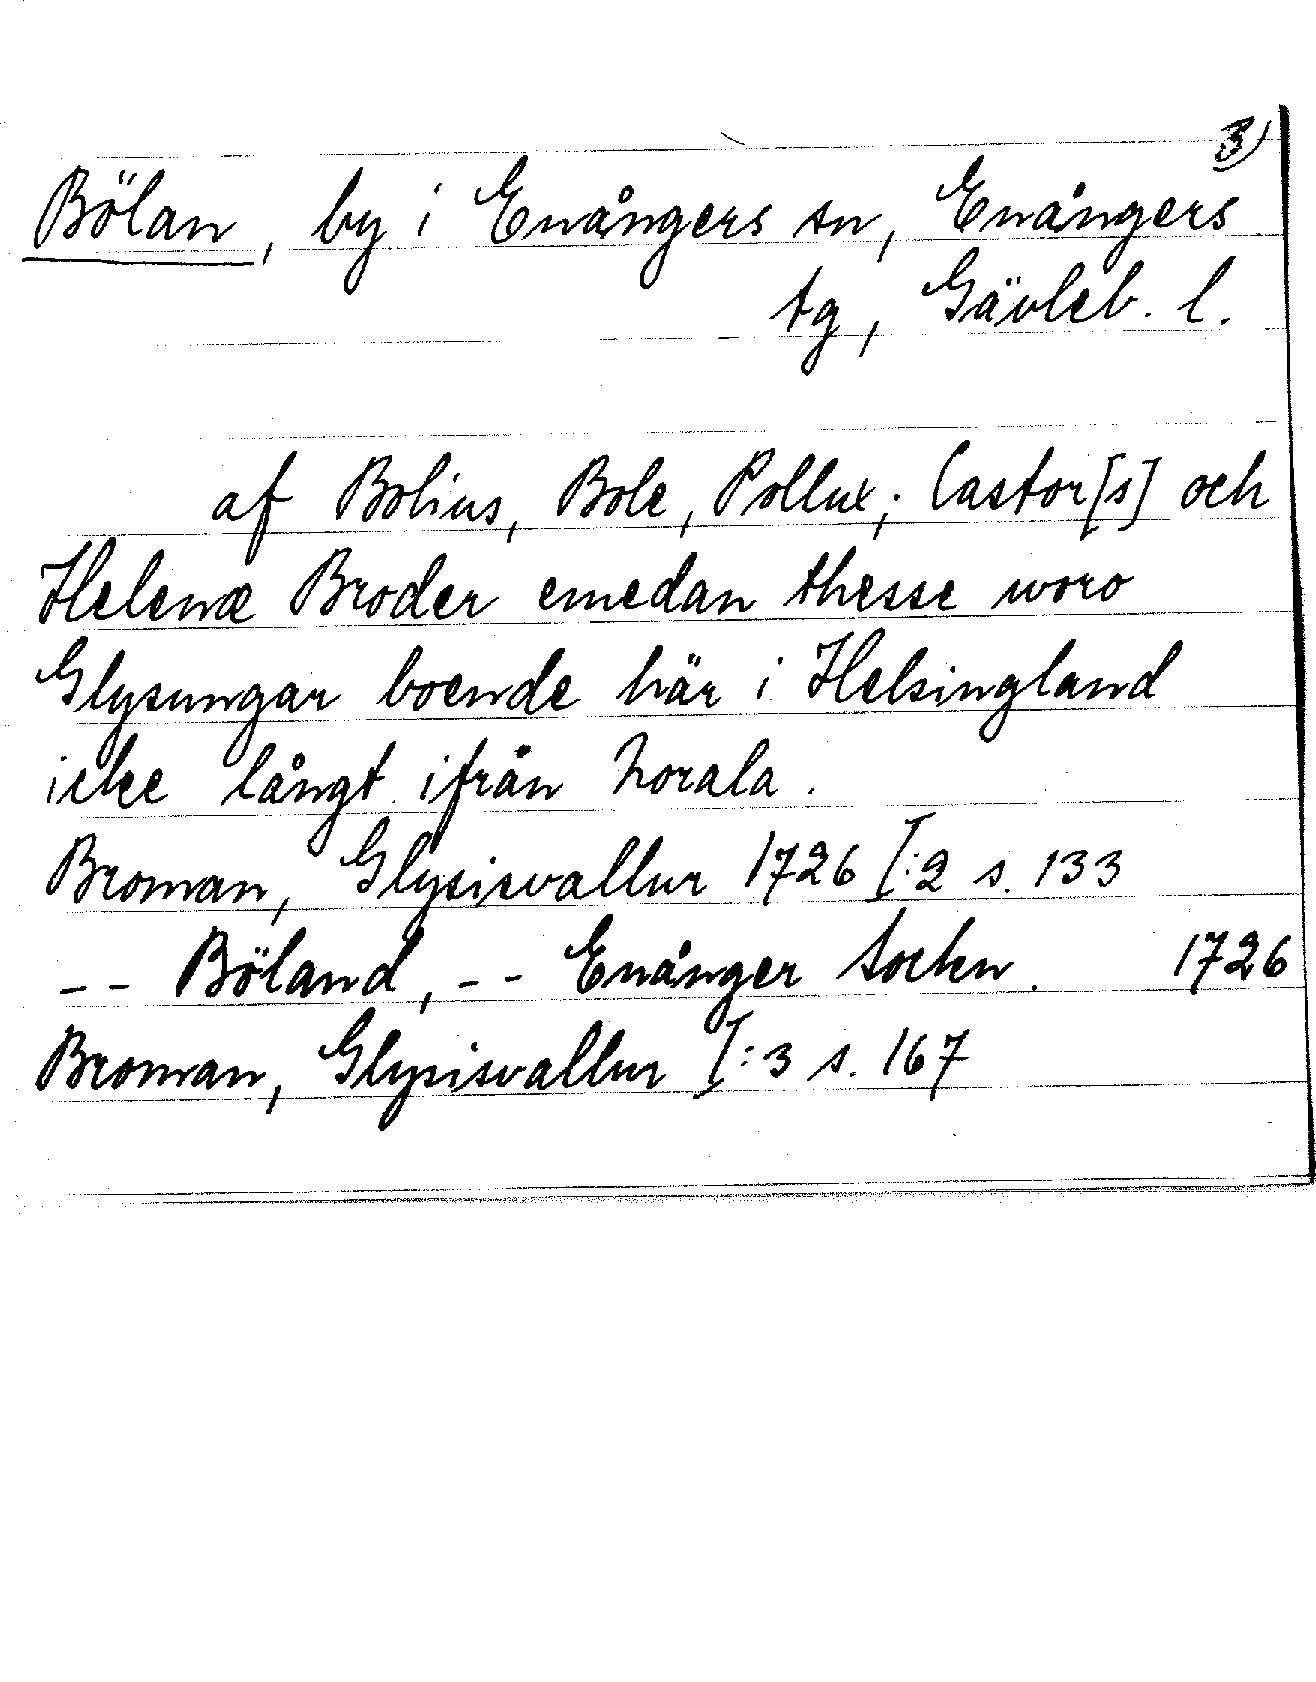 3)
Bölan, by i Enångers sn, Enångers
tg, Gävleb. l.
af Bolius, Bole, Pollux; Castor[s] och
Helenæ Broder emedan thesse woro
Glysungar boende här i Helsingland
icke långt ifrån Norala.
Broman, Glysisvallur 1726 I:2 s. 133
-- Böland, -- Enånger Sockn. 1726
Broman, Glysisvallur I:3 s. 167